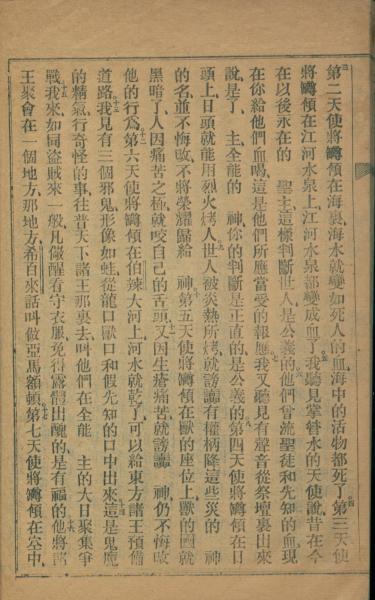 第二天使將罇傾在海裏海水就變如死人的血海中的活物都死了第三天使
將罇傾在江河水泉上江河水泉都變成血了我聽見掌管水的天使說昔在今
在以後永在的　聖主這樣判斷世人是公義的他們曾流聖徒和先知的血現
在你給他們血喝這是他們所應當受的報應我又聽見有聲音從祭壇裏出來
說是了　主全能的　神你的判斷是正直的是公義的第四天使將罇傾在日
頭上日頭就能用烈火烤人世人被炎熱所烤就謗讟有權柄降這些災的　神
的名並不悔改不將榮耀歸給　神第五天使將罇傾在獸的座位上獸的國就
黑暗了人因痛苦之極就咬自己的舌頭又因生瘡痛苦就謗讟　神仍不悔改
他的行為第六天使將罇傾在伯辣大河上河水就乾了可以給東方諸王預備
道路我見有三個邪鬼形像如蛙從龍口獸口和假先知的口中出來這是鬼魔
的精氣行奇怪的事往普天下諸王那裏去叫他們在全能　主的大日聚集爭
戰我來如同盜賊來一般凡儆醒看守衣服免得露體出醜的是有福的他將諸
王聚會在一個地方那地方希百來話叫做亞馬額頓第七天使將罇傾在空中